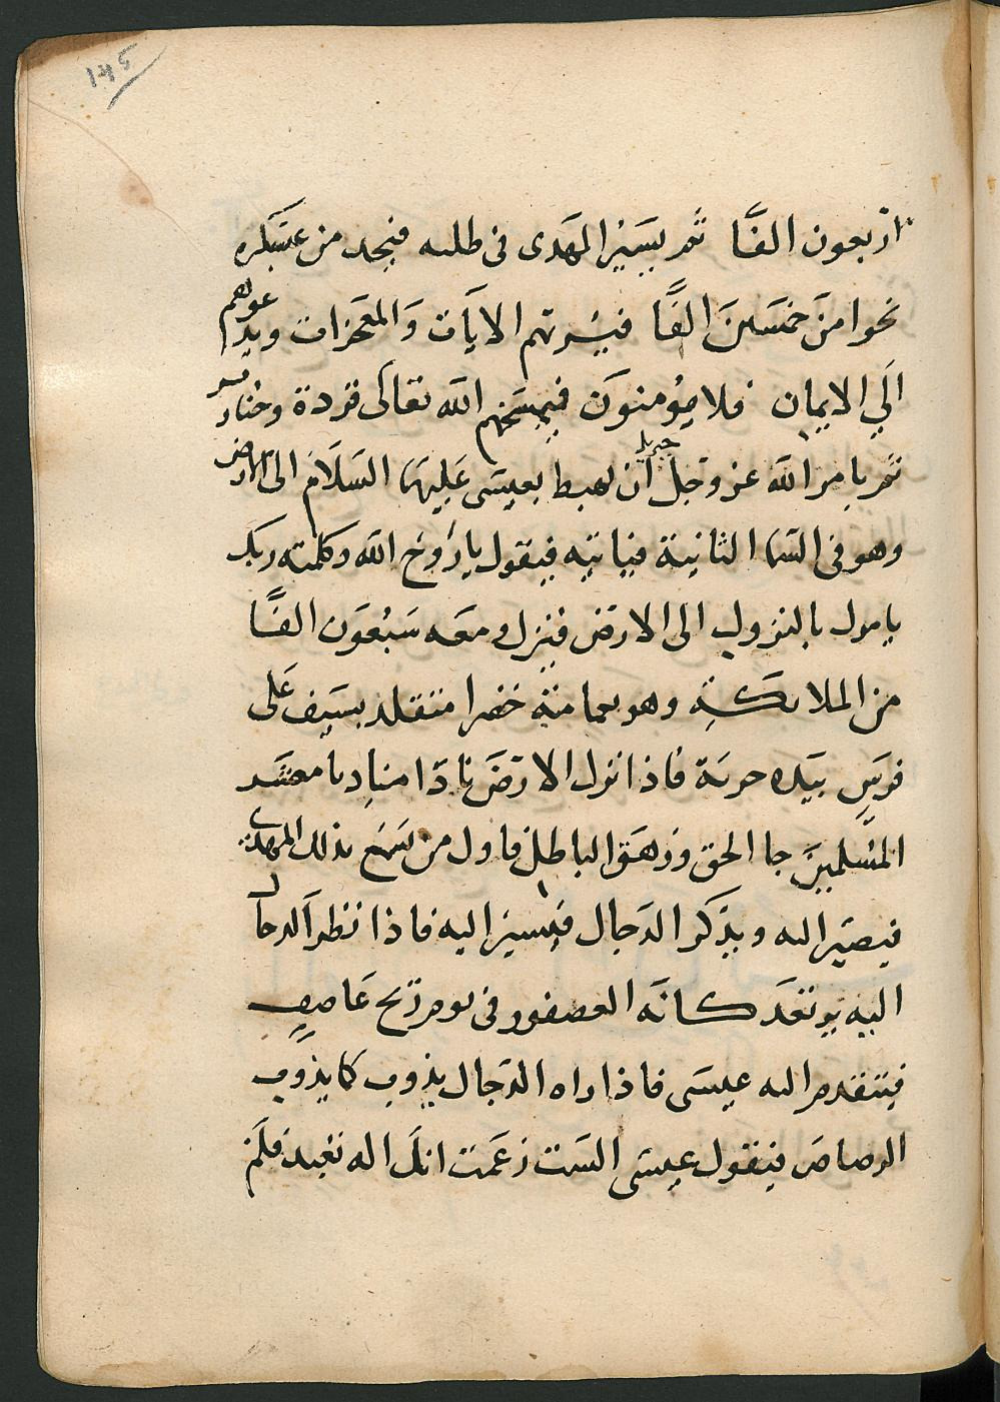 ١٣٥
اربعون الفًا ثم يسير المهدى فى طلبه فيجد من عسكره
نحوا من خمسين الفًا فيريهم الايات والمعجزات ويدعوهم
الى الايمان فلا يؤمنون فيمسخهم الله تعالى قردة وخنازير
ثم يامر الله عز وجل جبريل ان يهبط بعيسى عليهما السلام الى الارض
وهو فى السما الثانية فياتيه فيقول يا روح الله وكلمته ربك
يامرك بالنزول الى الارض فينزل ومعه سبعون الفًا
من الملائكة وهو بعمامة خضرا متقلد بسيف على
فرس بيده حربة فاذا نزل الارض نادا مناد يا معشر
المسلمين جا الحق وزهق الباطل فاول من يسمع بذلك المهدى
فيصير اليه ويذكر الدجال فيسير اليه فاذا نظر الدجال
اليه يرتعد كانه العصفور فى يوم ريح عاصف
فيتقدم اليه عيسى فاذا راه الدجال يذوب كما يذوب
الرصاص فيقول عيسى الست زعمت انك اله تعبد فلم